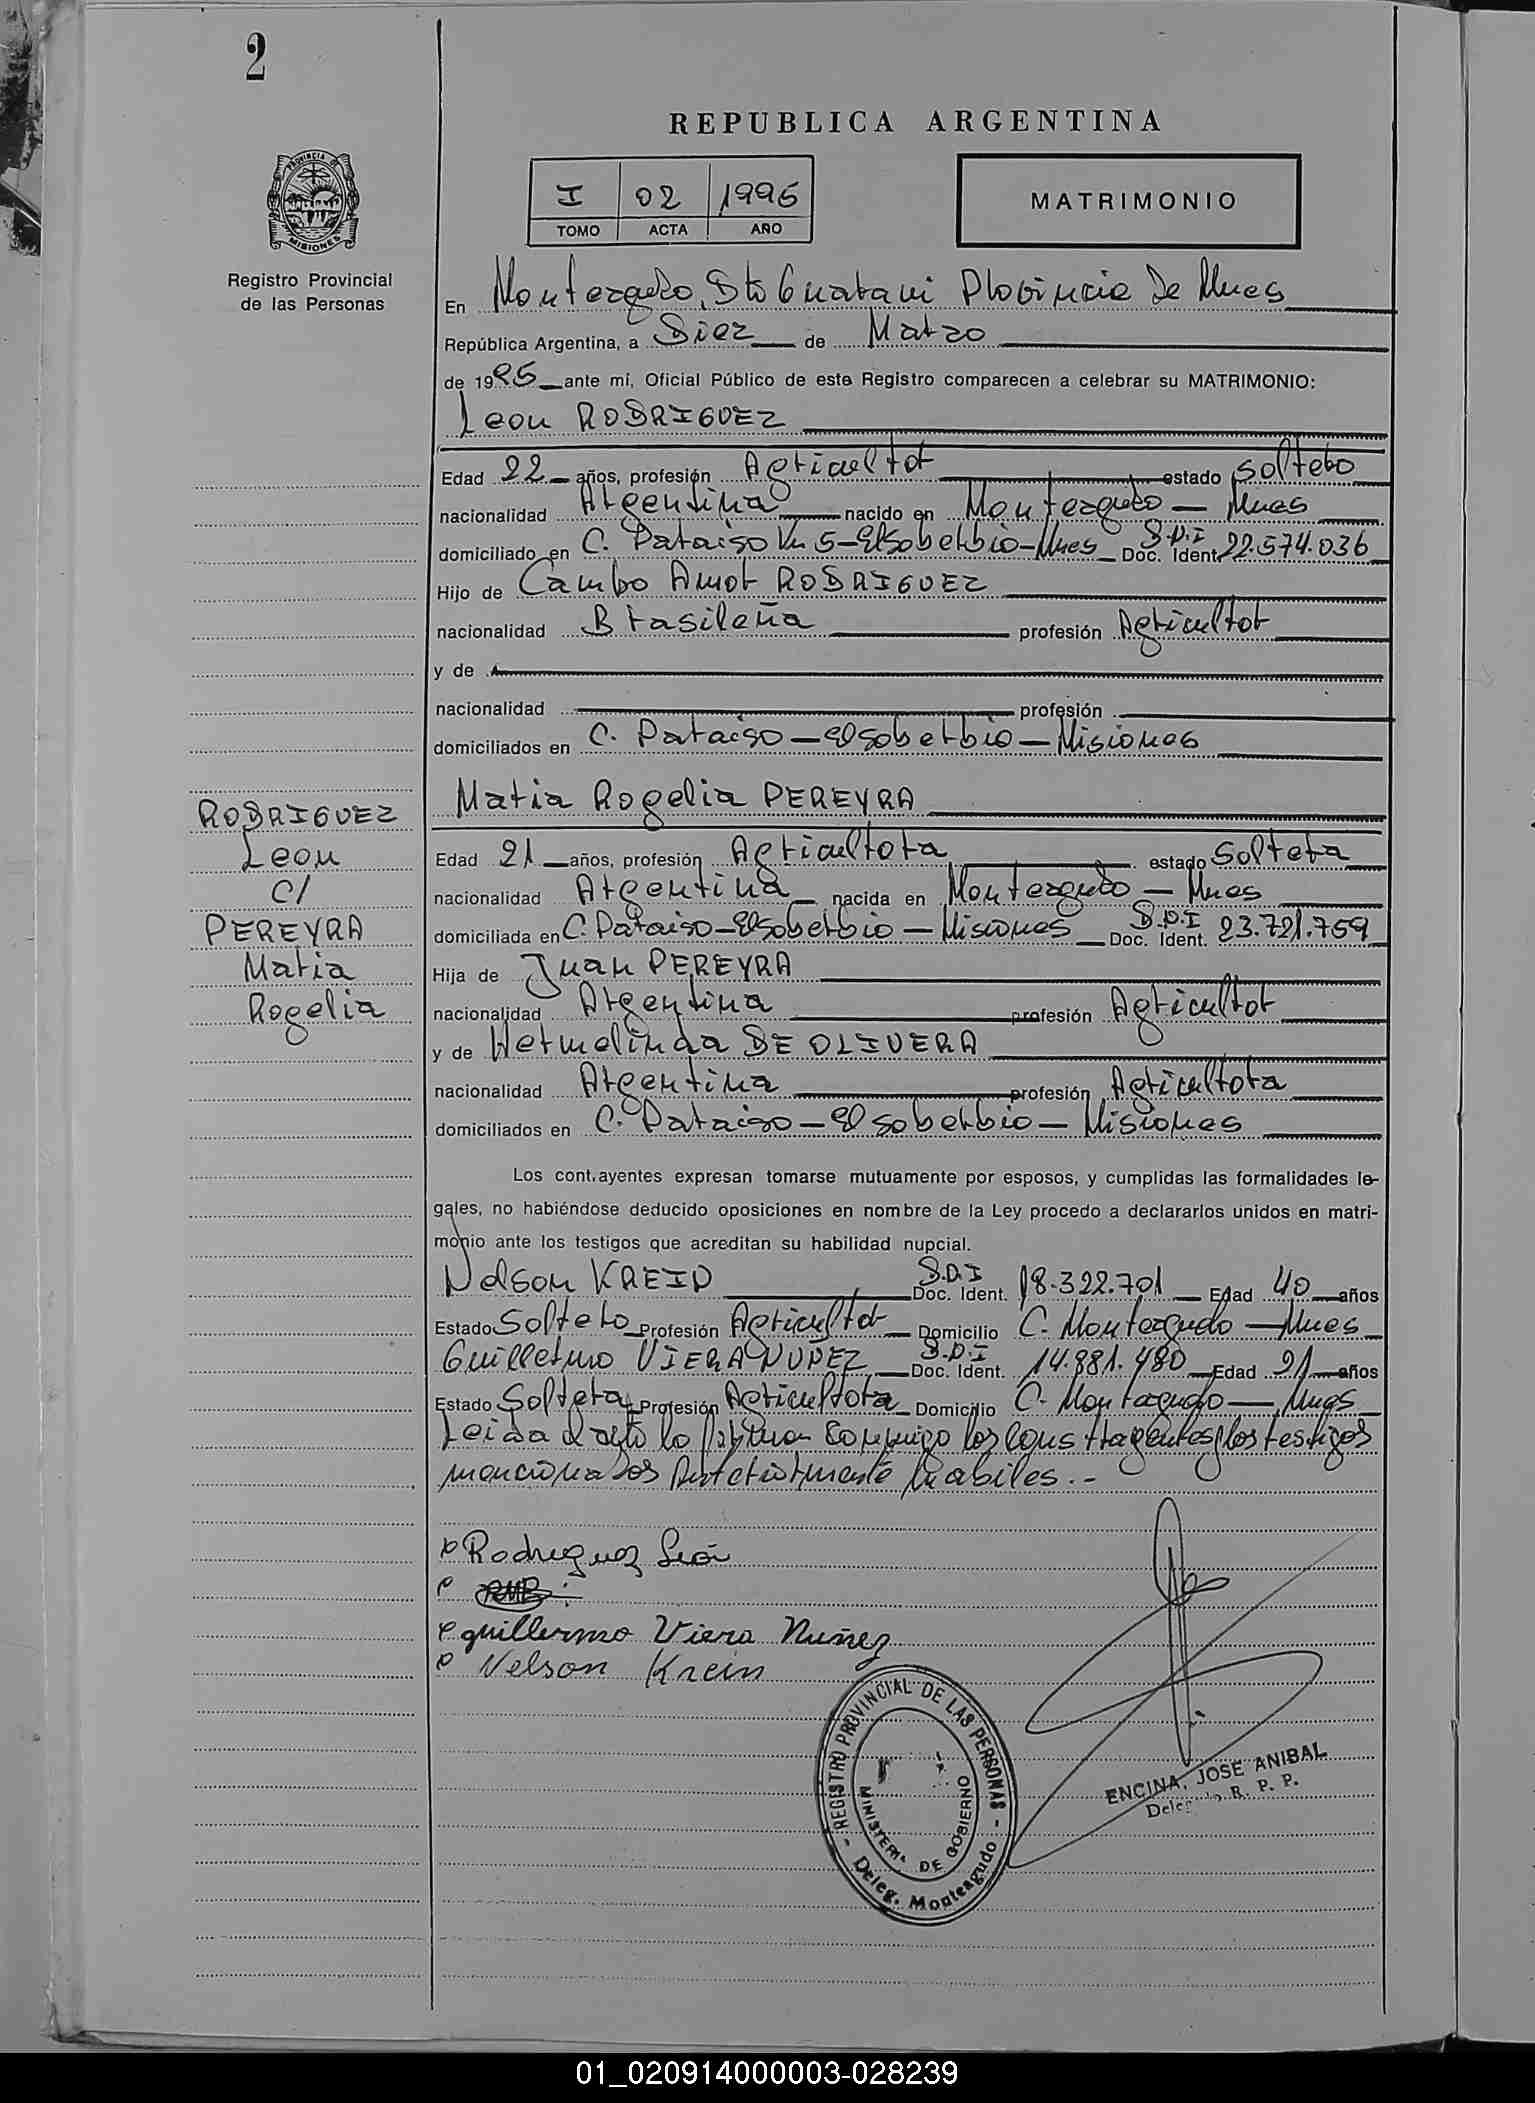 2
REPUBLICA ARGENTINA
PROVINCIA DE
MISIONES
I 02 1995
TOMO ACTA AÑO
MATRIMONIO
Registro Provincial
de las Personas
En Monteagudo, Dto Guarani Provincia De Mnes
República Argentina, a Diez de Marzo
de 1995 ante mí, Oficial Público de este Registro comparecen a celebrar su MATRIMONIO:
Leon RODRIGUEZ
Edad 22 años, profesión Agricultor estado soltero
nacionalidad Argentina nacido en Monteagudo - Mnes
domiciliado en C. Paraiso Km 5-El soberbio-Mnes Doc. Ident. D.D.I 22.574.036
Hijo de Cambo Amor RODRIGUEZ
nacionalidad Brasileña profesión Agricultor
y de
nacionalidad profesión
domiciliados en C. Paraiso - El soberbio - Misiones
Maria Rogelia PEREYRA
Edad 21 años, profesión Agricultora estado Soltera
nacionalidad Argentina nacida en Monteagudo - Mnes
domiciliada en C. Paraiso-El soberbio - Misiones Doc. Ident. D.D.I 23.721.759
Hija de Juan PEREYRA
nacionalidad Argentina profesión Agricultor
y de Hermelinda DE OLIVERA
nacionalidad Argentina profesión Agricultora
domiciliados en C. Paraiso - El soberbio - Misiones
RODRIGUEZ
Leon
C/
PEREYRA
Maria
Rogelia
Los cont.ayentes expresan tomarse mutuamente por esposos, y cumplidas las formalidades le-
gales, no habiéndose deducido oposiciones en nombre de la Ley procedo a declararlos unidos en matri-
monio ante los testigos que acreditan su habilidad nupcial.
Nelson KREIN Doc. Ident. D.D.I 18.322.701 Edad 40 años
Estado Soltero Profesión Agricultor Domicilio C. Monteagudo - Mnes
Guillermo VIERA NUÑEZ Doc. Ident. D.D.I 14.881.480 Edad 21 años
Estado Soltera Profesión Agricultora Domicilio C. Monteagudo - Mnes
Leida el acta la firman conmigo los contrayentes y los testigos
mencionados anteriormente habiles.-
Rodriguez León
guillermo Viera Nuñez
Nelson Krein
- REGISTRO PROVINCIAL DE LAS PERSONAS -
MINISTERIO DE GOBIERNO
Deleg. Monteagudo
ENCINA, JOSE ANIBAL
R. P. P.
01_020914000003-028239